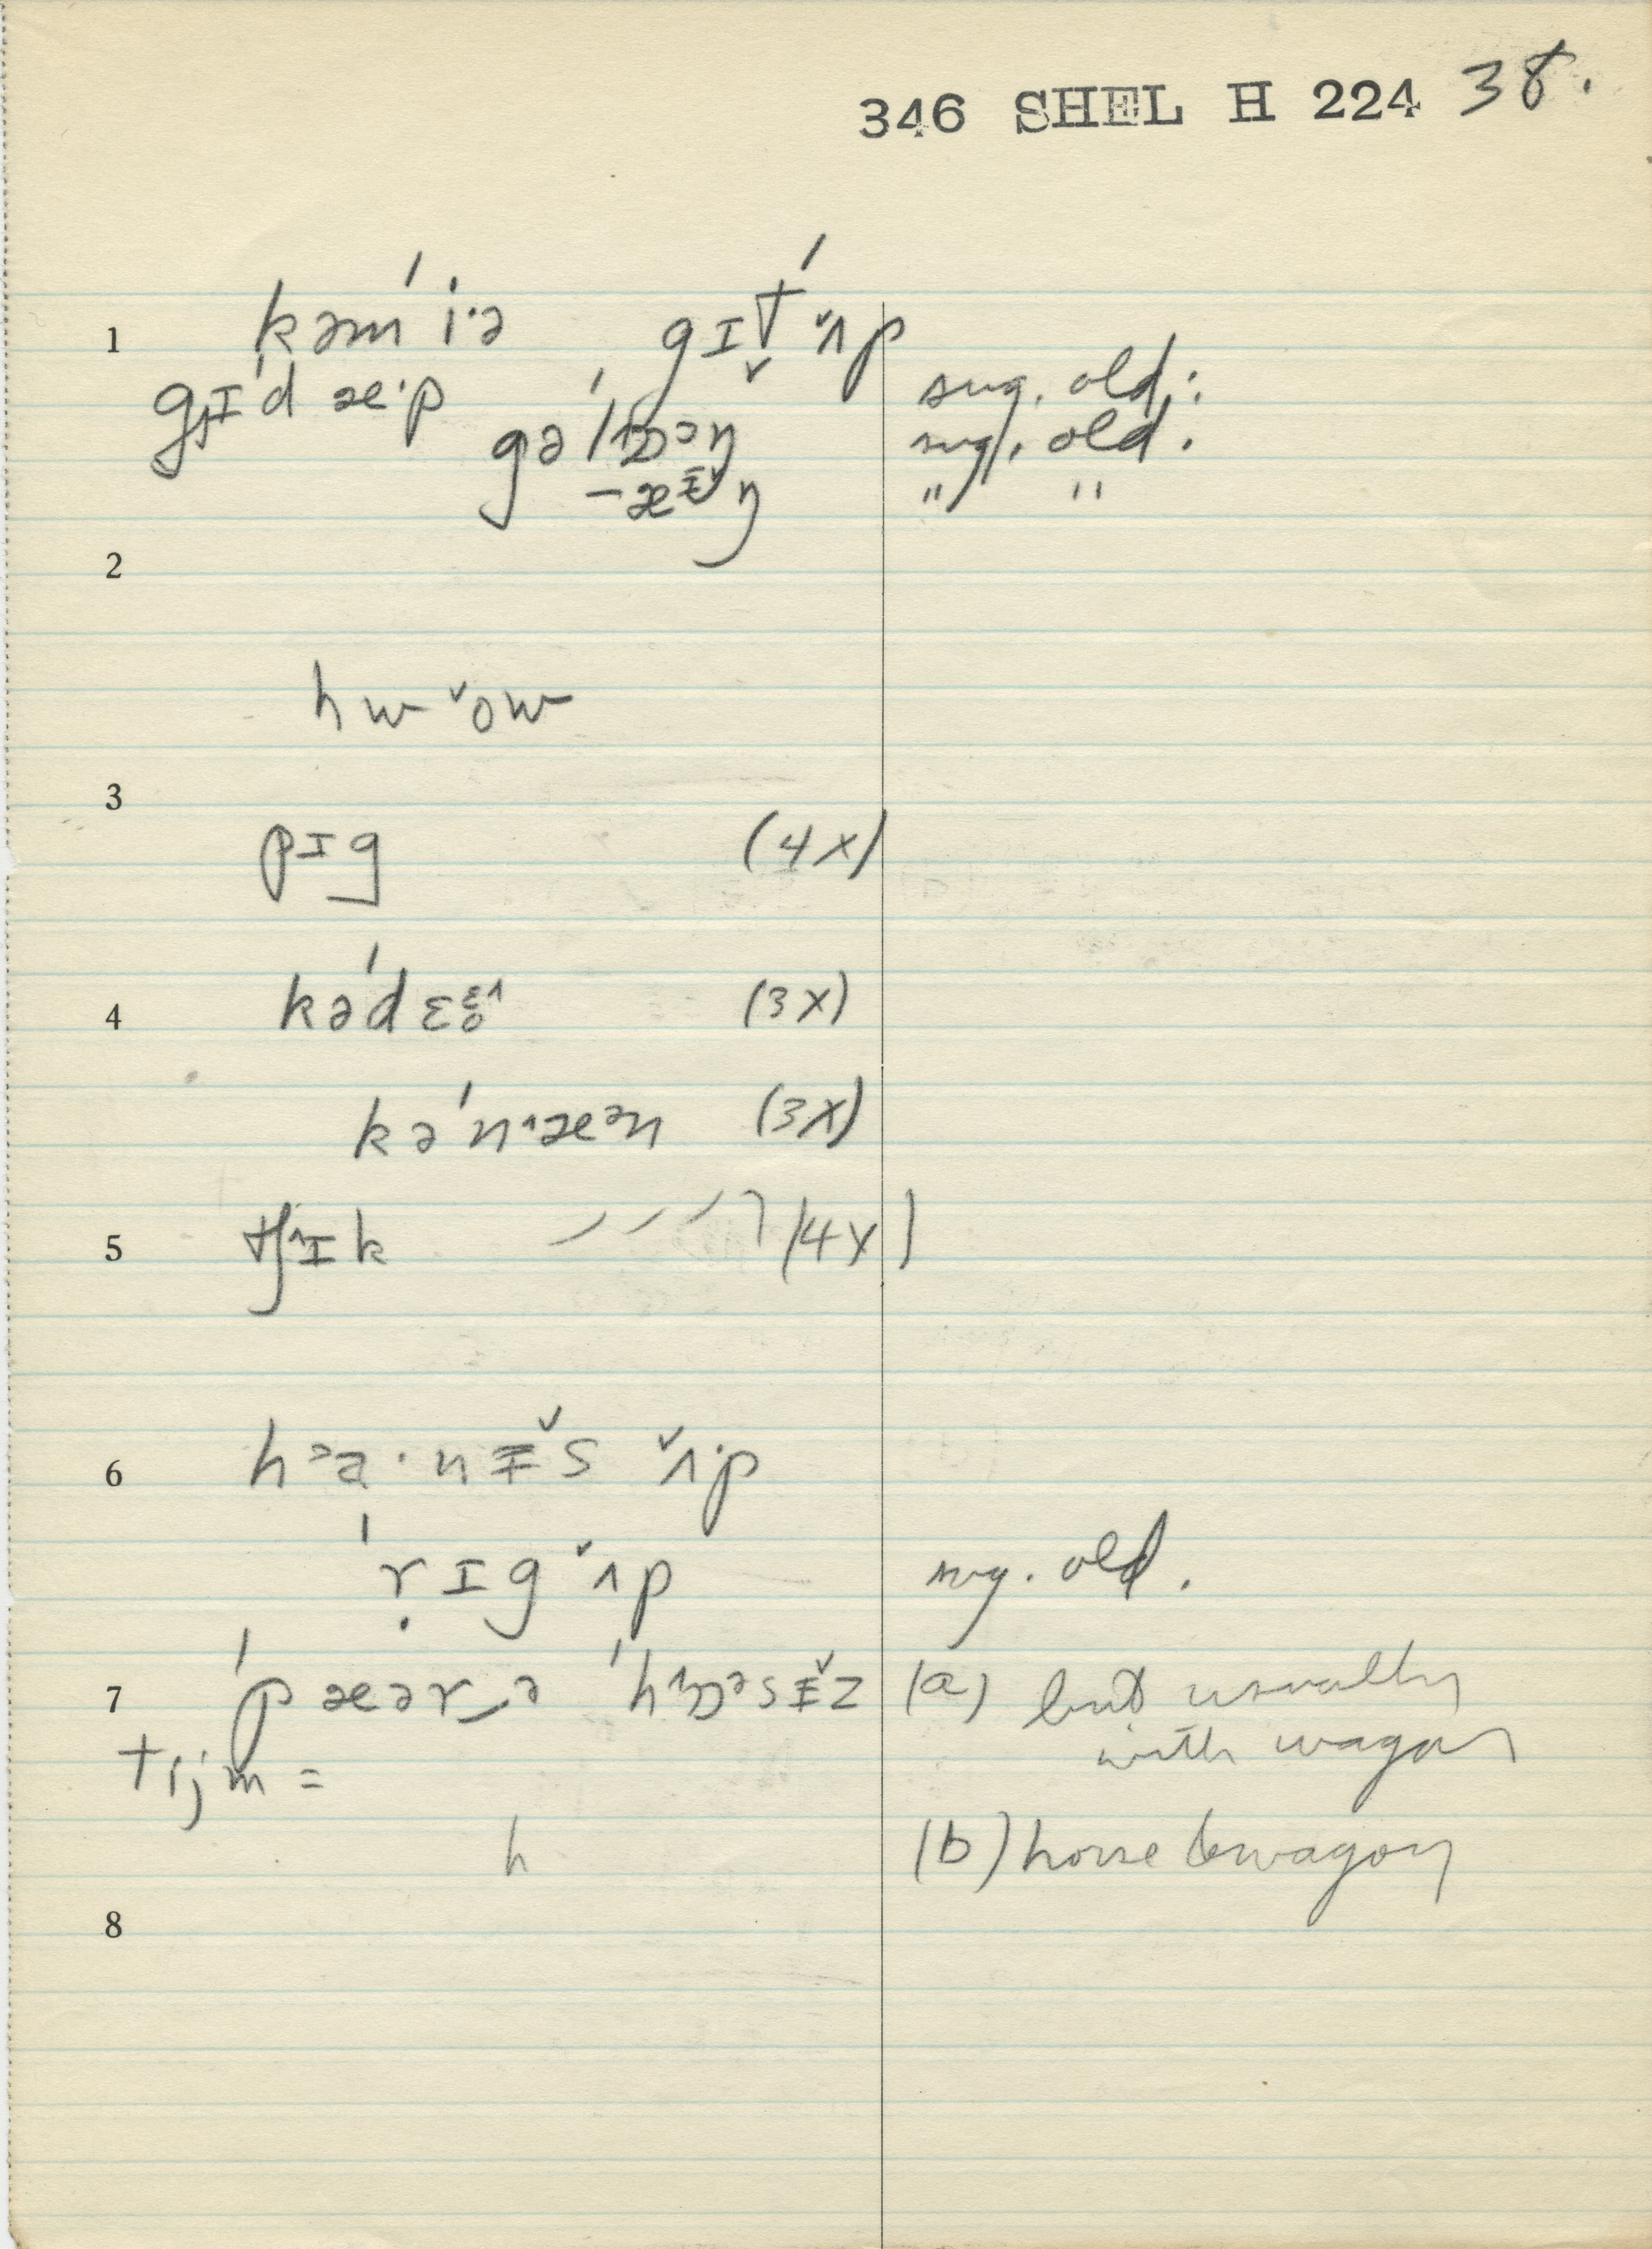 346 SHEL H 224 38.
1 kəmˈi·ə gɪtˈʌ̌p
gɪˈd æ·p sug. old:
gəˈlɒɔŋ sug. old.
–æɪ̵̌ŋ " "
2
hw ǒw
3
pɪg (4x)
4 kəˈdɛɛ̥^ (3x)
kəˈn^æən (3x)
5 tʃ^ɪk (4x)
6 hɔa·nɪ̵̌s ʌ̌·p
ˈṛɪgʌ̌p sug. old.
7 ˈpæər‿ə ˈh^ɒəsɪ̵̌z (a) but usually
with wagon
tijm =
h (b) horse & wagon
8